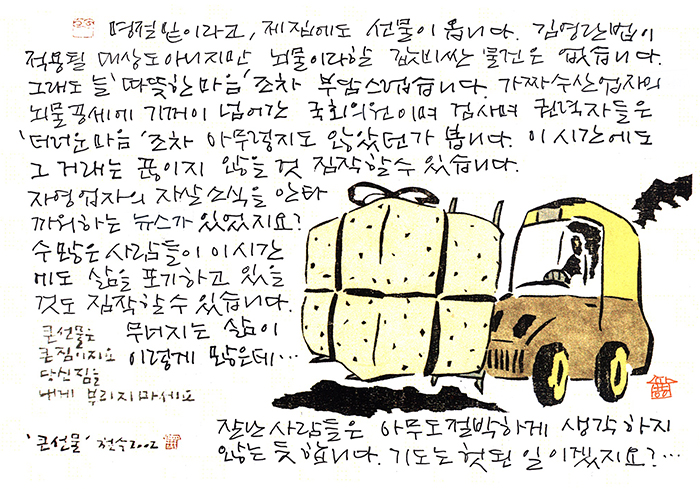 명절 밑이라고, 제 집에도 선물이 옵니다. 김영란법이
적용될 대상도 아니지만 뇌물이라 할 값비싼 물건은 없습니다.
그래도 늘 '따뜻한 마음' 조차 부담스럽습니다. 가짜 수산업자의
뇌물공세에 기꺼이 넘어간 국회의원이며 검사며 권력자들은
'더러운 마음' 조차 아무렇지도 않았던가 봅니다. 이 시간에도
그 거래는 끊이지 않을 것 짐작할 수 있습니다.
자영업자의 자살 소식을 안타
까워하는 뉴스가 있었지요?
수많은 사람들이 이 시간
에도 삶을 포기하고 있을
것도 짐작할 수 있습니다.
무너지는 삶이
이렇게 많은데…
큰 선물은
큰 짐이지요
당신 짐을
내게 부리지 마세요
'큰 선물' 철수 2002
잘난 사람들은 아무도 절박하게 생각하지
않는 듯 합니다. 기도는 헛된 일이겠지요?…